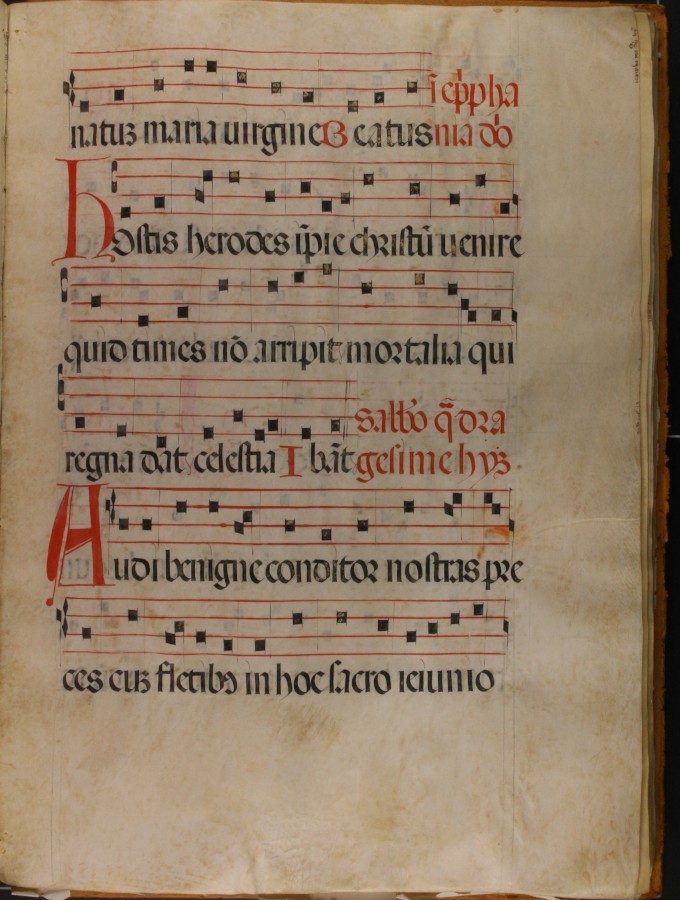 natus maria uirgine B eatus ī epypha
nia dō
Hostis herodes īpie christū uenire
quid times nō arripit mortalia qui
regna dat celestia I bāt sabbo q̄dra
gesime hỹs.
Audi benigne conditor nostras pre
ces cus fletibꝰ in hoc sacro ieiunio